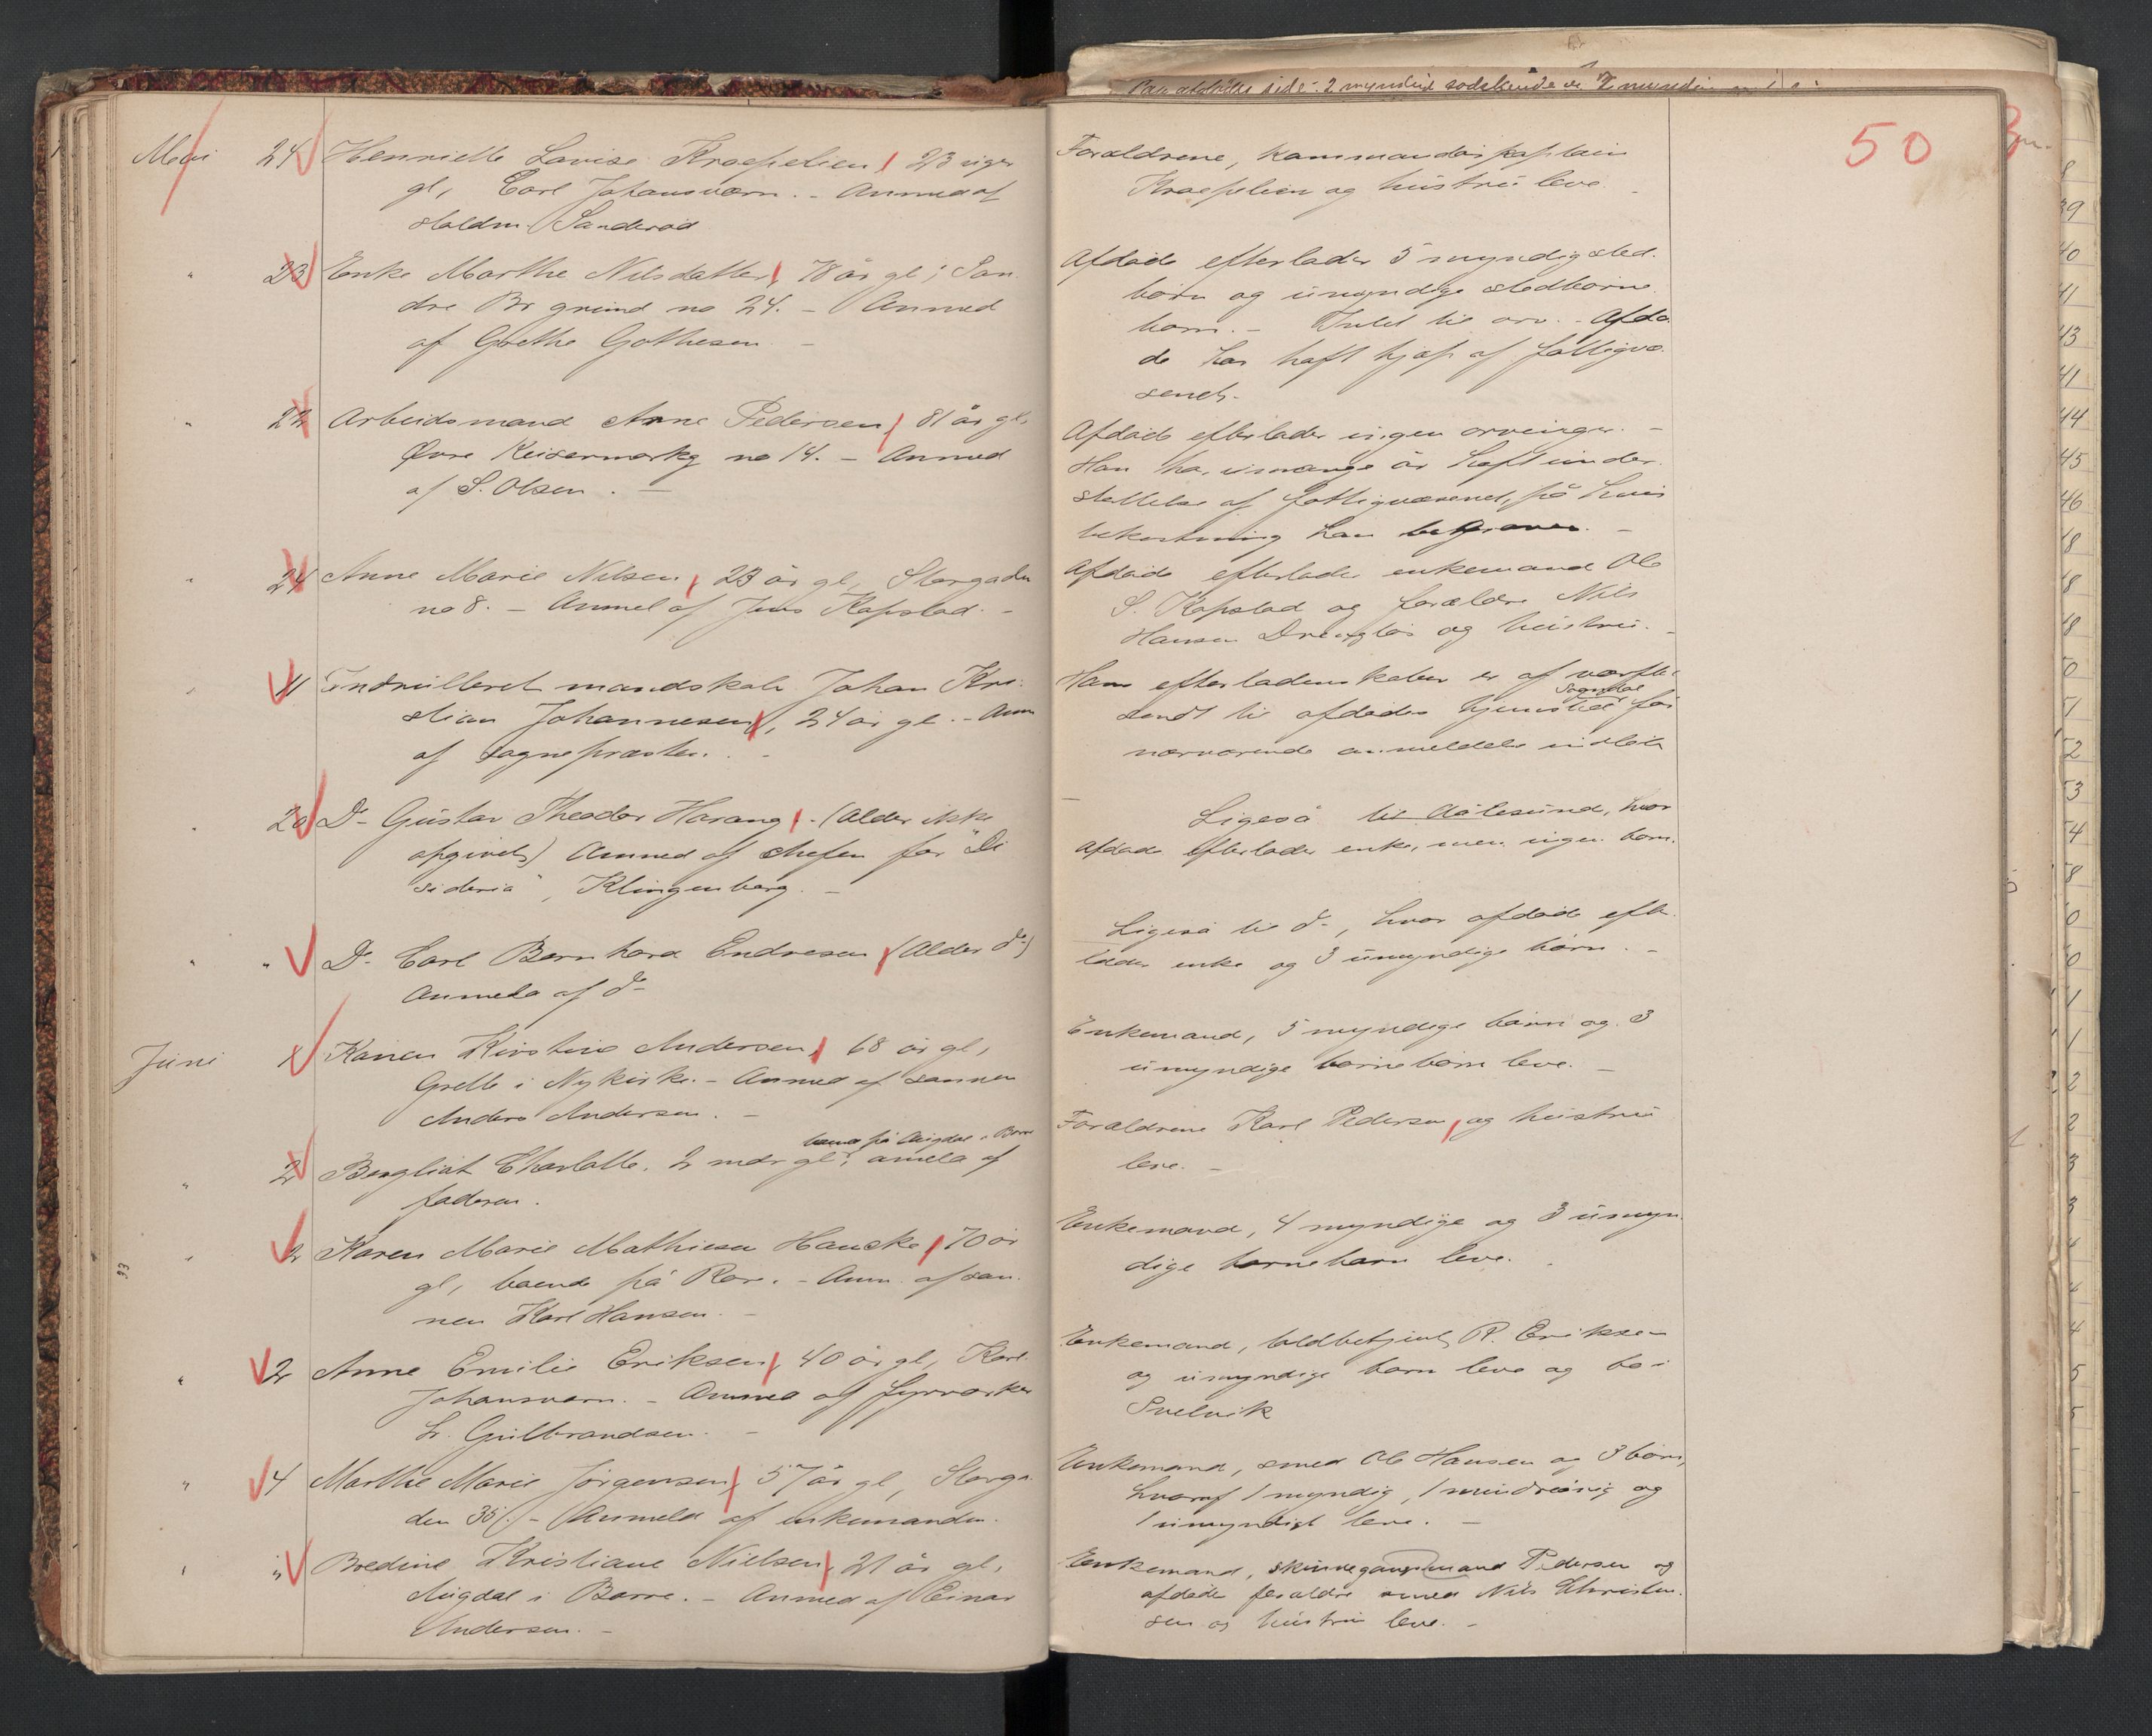 Mai 24 Henriette Lovise Kraepelien, 23 uger
gl, Carl Johansværn. - Anmed af
Haldm. Sanderød
" 23 Enke Marthe Nilsdatter, 78 år gl, San-
dre Br grund no 24. - Anmed
af Grethe Gothesen -
" 22 Arbeidsmand Arne Pedersen, 81 år gl,
Øvre Keisermarkg no 14. - Anmed
af S. Olsen. -
" 24 Anne Marie Nilsen, 23 år gl, Storgaden
no 8. - Anmel af Jens Kapstad. -
" 11 Indrulleret mandskab Johan Kri-
stian Johannesen, 24 år gl. - Anm
af sognepræsten. -
" 20 Do Gustav Theodor Harang. - (Alder ikke
opgivet) Anmed af chefen for "De
sideria", Klingenberg. -
" " Do Carl Bernhard Endresen (Alder do)
Anmeld af do
Juni 1 Karen Kirstine Andersen, 68 år gl,
Grette i Nykirke. - Anmed af sønnen
Anders Andersen. -
boende på Augdal i Borre
" 2 Bergliot Charlotte, 2 mdr gl, anmeld af
faderen.
" 2 Karen Marie Mathiesen Hauske, 70 år
gl, boende på Rør. - Anm. af søn-
nen Karl Hansen. -
" 2 Anne Emilie Eriksen, 40 år gl, Karl
Johansværn. - Anmed af fyrverker
L. Gulbrandsen. -
" 4 Marthe Marie Jørgensen, 57 år gl, Storga-
den 35. - Anmeld af enkemanden.
" " Bredine Kristiane Nielsen, 21 år gl,
Augdal i Borre. - Anmed af Einar
Andersen. -
33
50
Forældrene, kommandørkaptein
Kraepelien og hustru leve. -
Afdøde efterlader 5 myndige sted-
børn og umyndige stedbørne-
børn. - Intet til arv. - Afdø-
de har haft hjælp af fattigvæ-
senet. -
Afdøde efterlader ingen arvinger. -
Han har i mange år haft under-
støttelse af fattigvæsenet, på hvis
bekostning han begraves. -
Afdøde efterlader enkemand Ole
S. Kapstad og forældre Nils
Hansen og hustru. -
Hans efterladenskaber er af værftet
Sogndal
sendt til afdødes hjemsted før
nærværende anmeldelse indløb
Ligeså til Aalesund, hvor
afdøde efterlader enke, men ingen børn.
Ligeså til do, hvor afdøde efter-
lader enke og 3 umyndige børn. -
Enkemand, 5 myndige børn og 3
umyndige børnebørn leve. -
Forældrene Karl Pedersen, og hustru
leve. -
Enkemand, 4 myndige og 3 umyn-
dige børnebørn leve. -
Enkemand, toldbetjent P. Eriksen
og umyndige børn leve og bo i
Svelvik
Enkemand, smed Ole Hansen og 3 børn,
hvoraf 1 myndig, 1 mindreårig og
1 umyndigt leve. -
Enkemand, skinnegangsmand Pedersen og
afdødes forældre smed Nils Christen-
sen og hustru leve. -